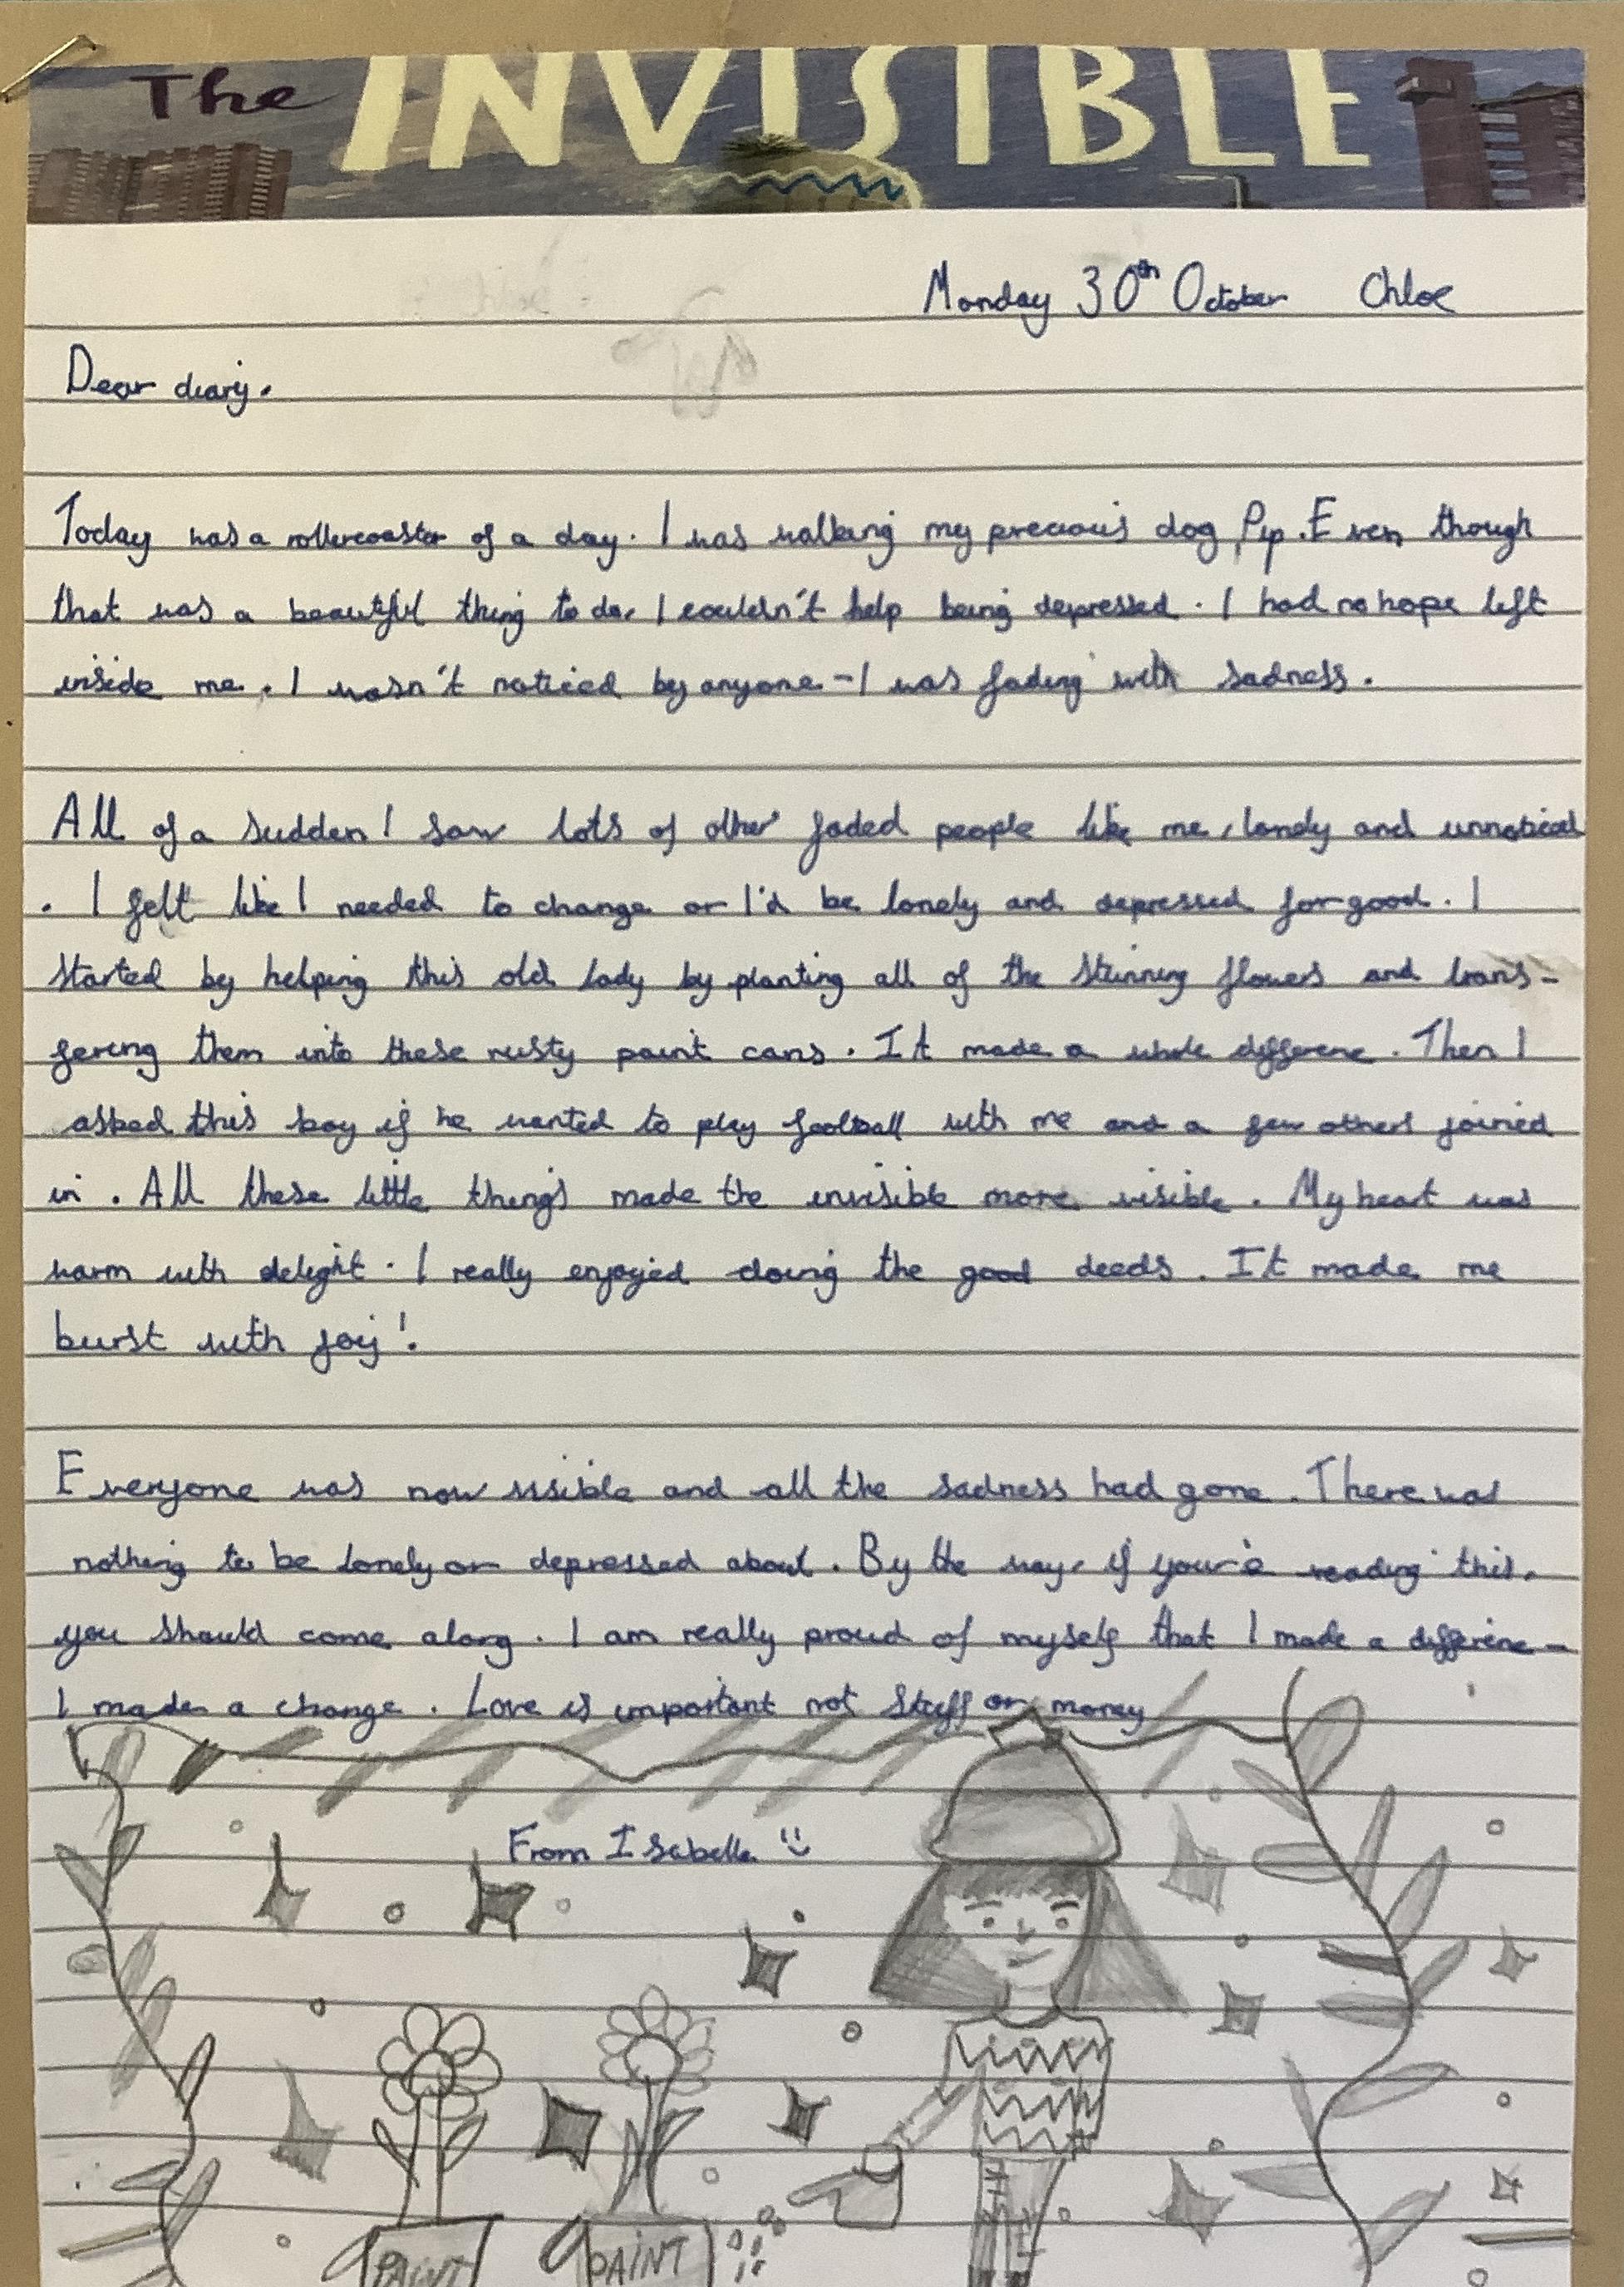 The INVISIBLE
Monday 30th October Chloe
Dear diary.
Today was a rollercoaster of a day. I was walking my precious dog, Pip. Even though
that was a beautiful thing to do, I couldn't help being depressed. I had no hope left
inside me. I wasn't noticed by anyone - I was fading with sadness.
All of a sudden I saw lots of other faded people like me, lonely and unnoticed
. I felt like I needed to change or I'd be lonely and depressed for good. I
started by helping this old lady by planting all of the stunning flowers and trans-
fering them into these rusty paint cans. It made a whole differene. Then I
asked this boy if he wanted to play football with me and a few others joined
in. All these little things made the invisible more visible. My heart was
warm with delight. I really enjoyed doing the good deeds. It made me
burst with joy!
Everyone was now visible and all the sadness had gone. There was
nothing to be lonely or depressed about. By the way, if your'e reading this,
you should come along. I am really proud of myself that I made a differene -
I made a change. Love is important not stuff or money
From Isabella
PAINT PAINT